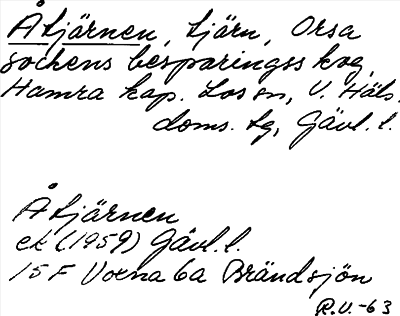 Åtjärnen, tjärn, Orsa
sockens besparingsskog,
Hamra kap. Los sn, V. Häls.
doms. tg, Gävl. l.
Åtjärnen
ek (1959) Gävl. l.
15F Voxna 6a Brändsjön
R.V. -63